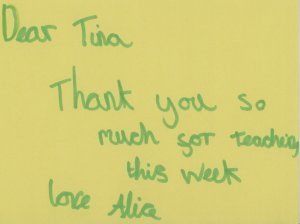 Dear Tina
Thank you so
much for teaching
this week
love Alice